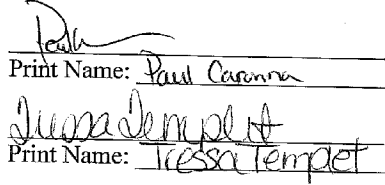 Print Name: Paul Caronna
Tressa Templet
Print Name: Tressa Templet